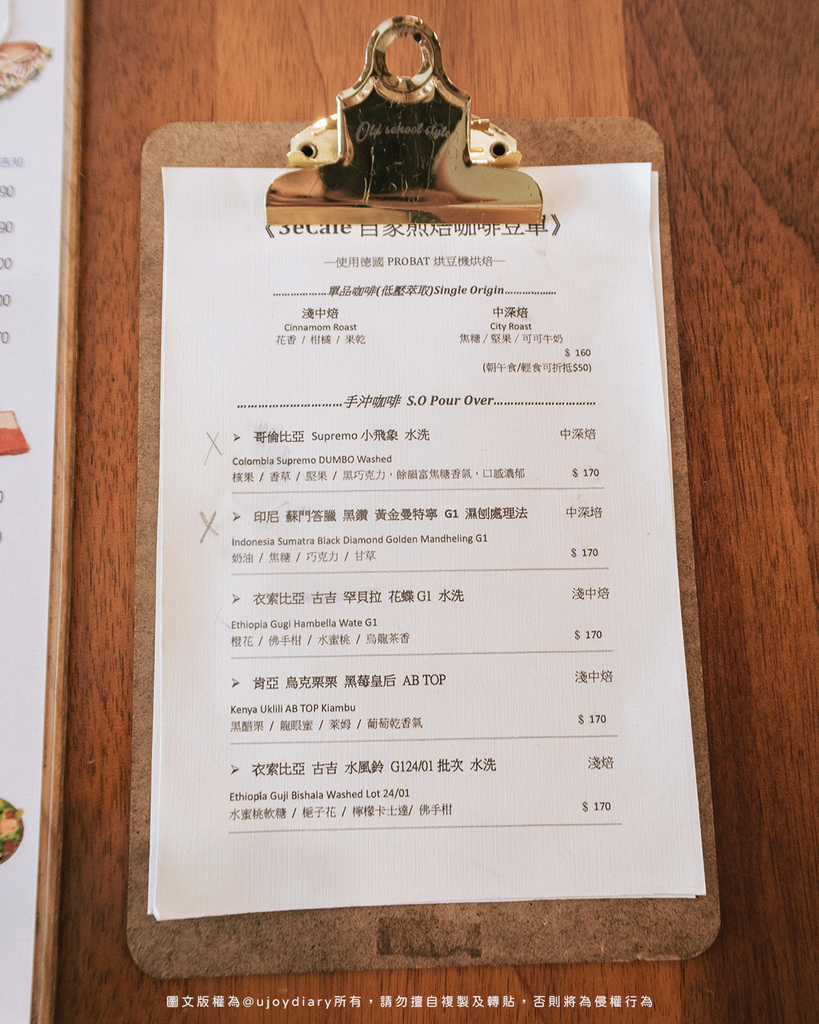 Old school style
《3eCafe 自家煎焙咖啡豆單》
—使用德國 PROBAT 烘豆機烘焙—
………………單品咖啡(低壓萃取)Single Origin………………
淺中焙 中深焙
Cinnamom Roast City Roast
花香 / 柑橘 / 果乾 焦糖 / 堅果 / 可可牛奶
$ 160
(朝午食/輕食可折抵$50)
…………………………手沖咖啡 S.O Pour Over…………………………
➢ 哥倫比亞 Supremo 小飛象 水洗 中深焙
Colombia Supremo DUMBO Washed
核果 / 香草 / 堅果 / 黑巧克力，餘韻富焦糖香氣，口感濃郁 $ 170
➢ 印尼 蘇門答臘 黑鑽 黃金曼特寧 G1 濕刨處理法 中深焙
Indonesia Sumatra Black Diamond Golden Mandheling G1
奶油 / 焦糖 / 巧克力 / 甘草 $ 170
➢ 衣索比亞 古吉 罕貝拉 花蝶 G1 水洗 淺中焙
Ethiopia Gugi Hambella Wate G1
橙花 / 佛手柑 / 水蜜桃 / 烏龍茶香 $ 170
➢ 肯亞 烏克栗栗 黑莓皇后 AB TOP 淺中焙
Kenya Uklili AB TOP Kiambu
黑醋栗 / 龍眼蜜 / 萊姆 / 葡萄乾香氣 $ 170
➢ 衣索比亞 古吉 水風鈴 G124/01 批次 水洗 淺焙
Ethiopia Guji Bishala Washed Lot 24/01
水蜜桃軟糖 / 梔子花 / 檸檬卡士達/ 佛手柑 $ 170
圖文版權為@ujoydiary所有，請勿擅自複製及轉貼，否則將為侵權行為